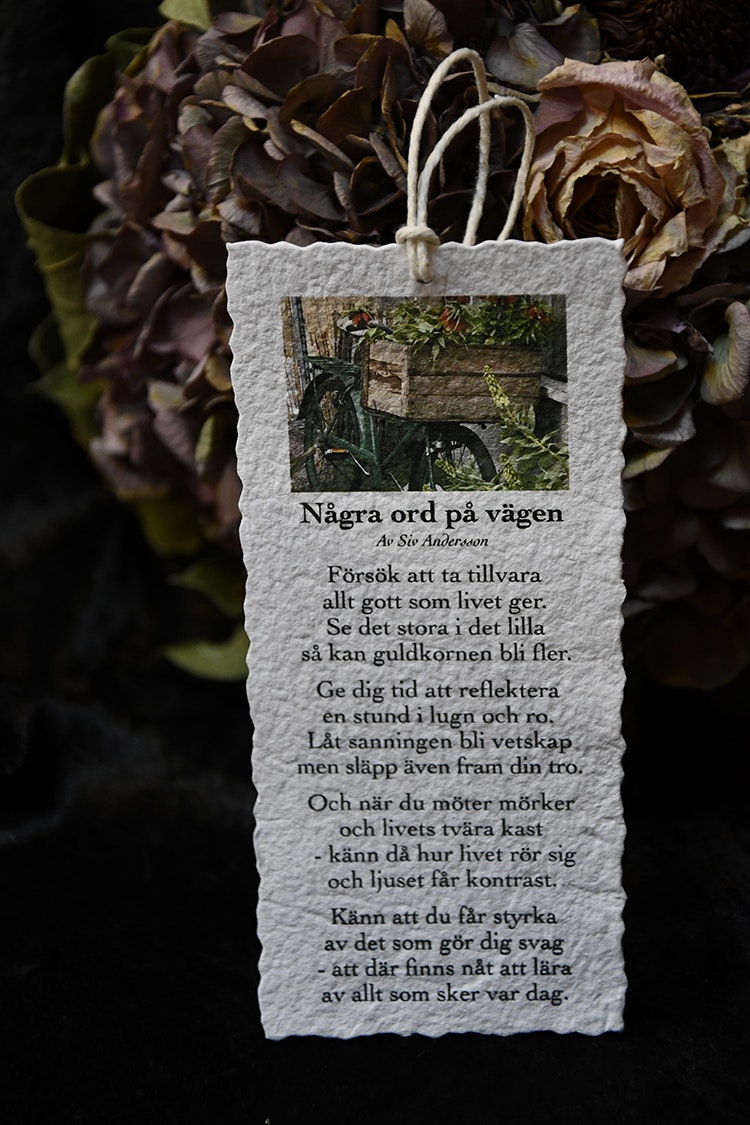 Några ord på vägen
Av Siv Andersson
Försök att ta tillvara
allt gott som livet ger.
Se det stora i det lilla
så kan guldkornen bli fler.
Ge dig tid att reflektera
en stund i lugn och ro.
Låt sanningen bli vetskap
men släpp även fram din tro.
Och när du möter mörker
och livets tvära kast
- känn då hur livet rör sig
och ljuset får kontrast.
Känn att du får styrka
av det som gör dig svag
- att där finns nåt att lära
av allt som sker var dag.